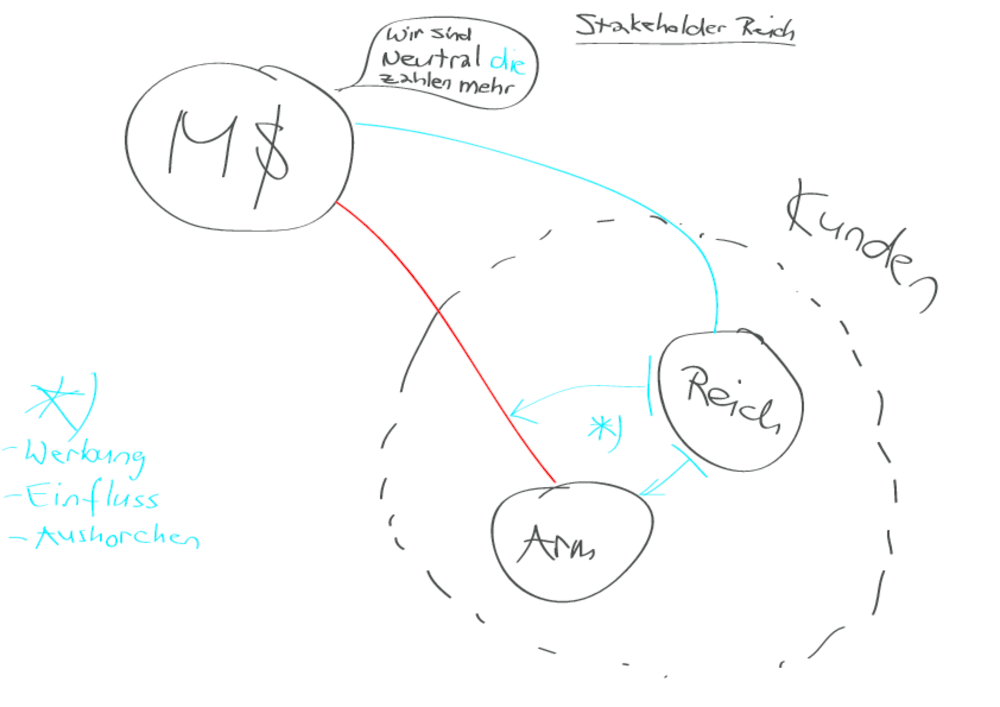 Stakeholder Reich
Wir sind
Neutral die
zahlen mehr
M$
Kunden
Reich
*)
Arm
*)
- Werbung
- Einfluss
- Aushorchen